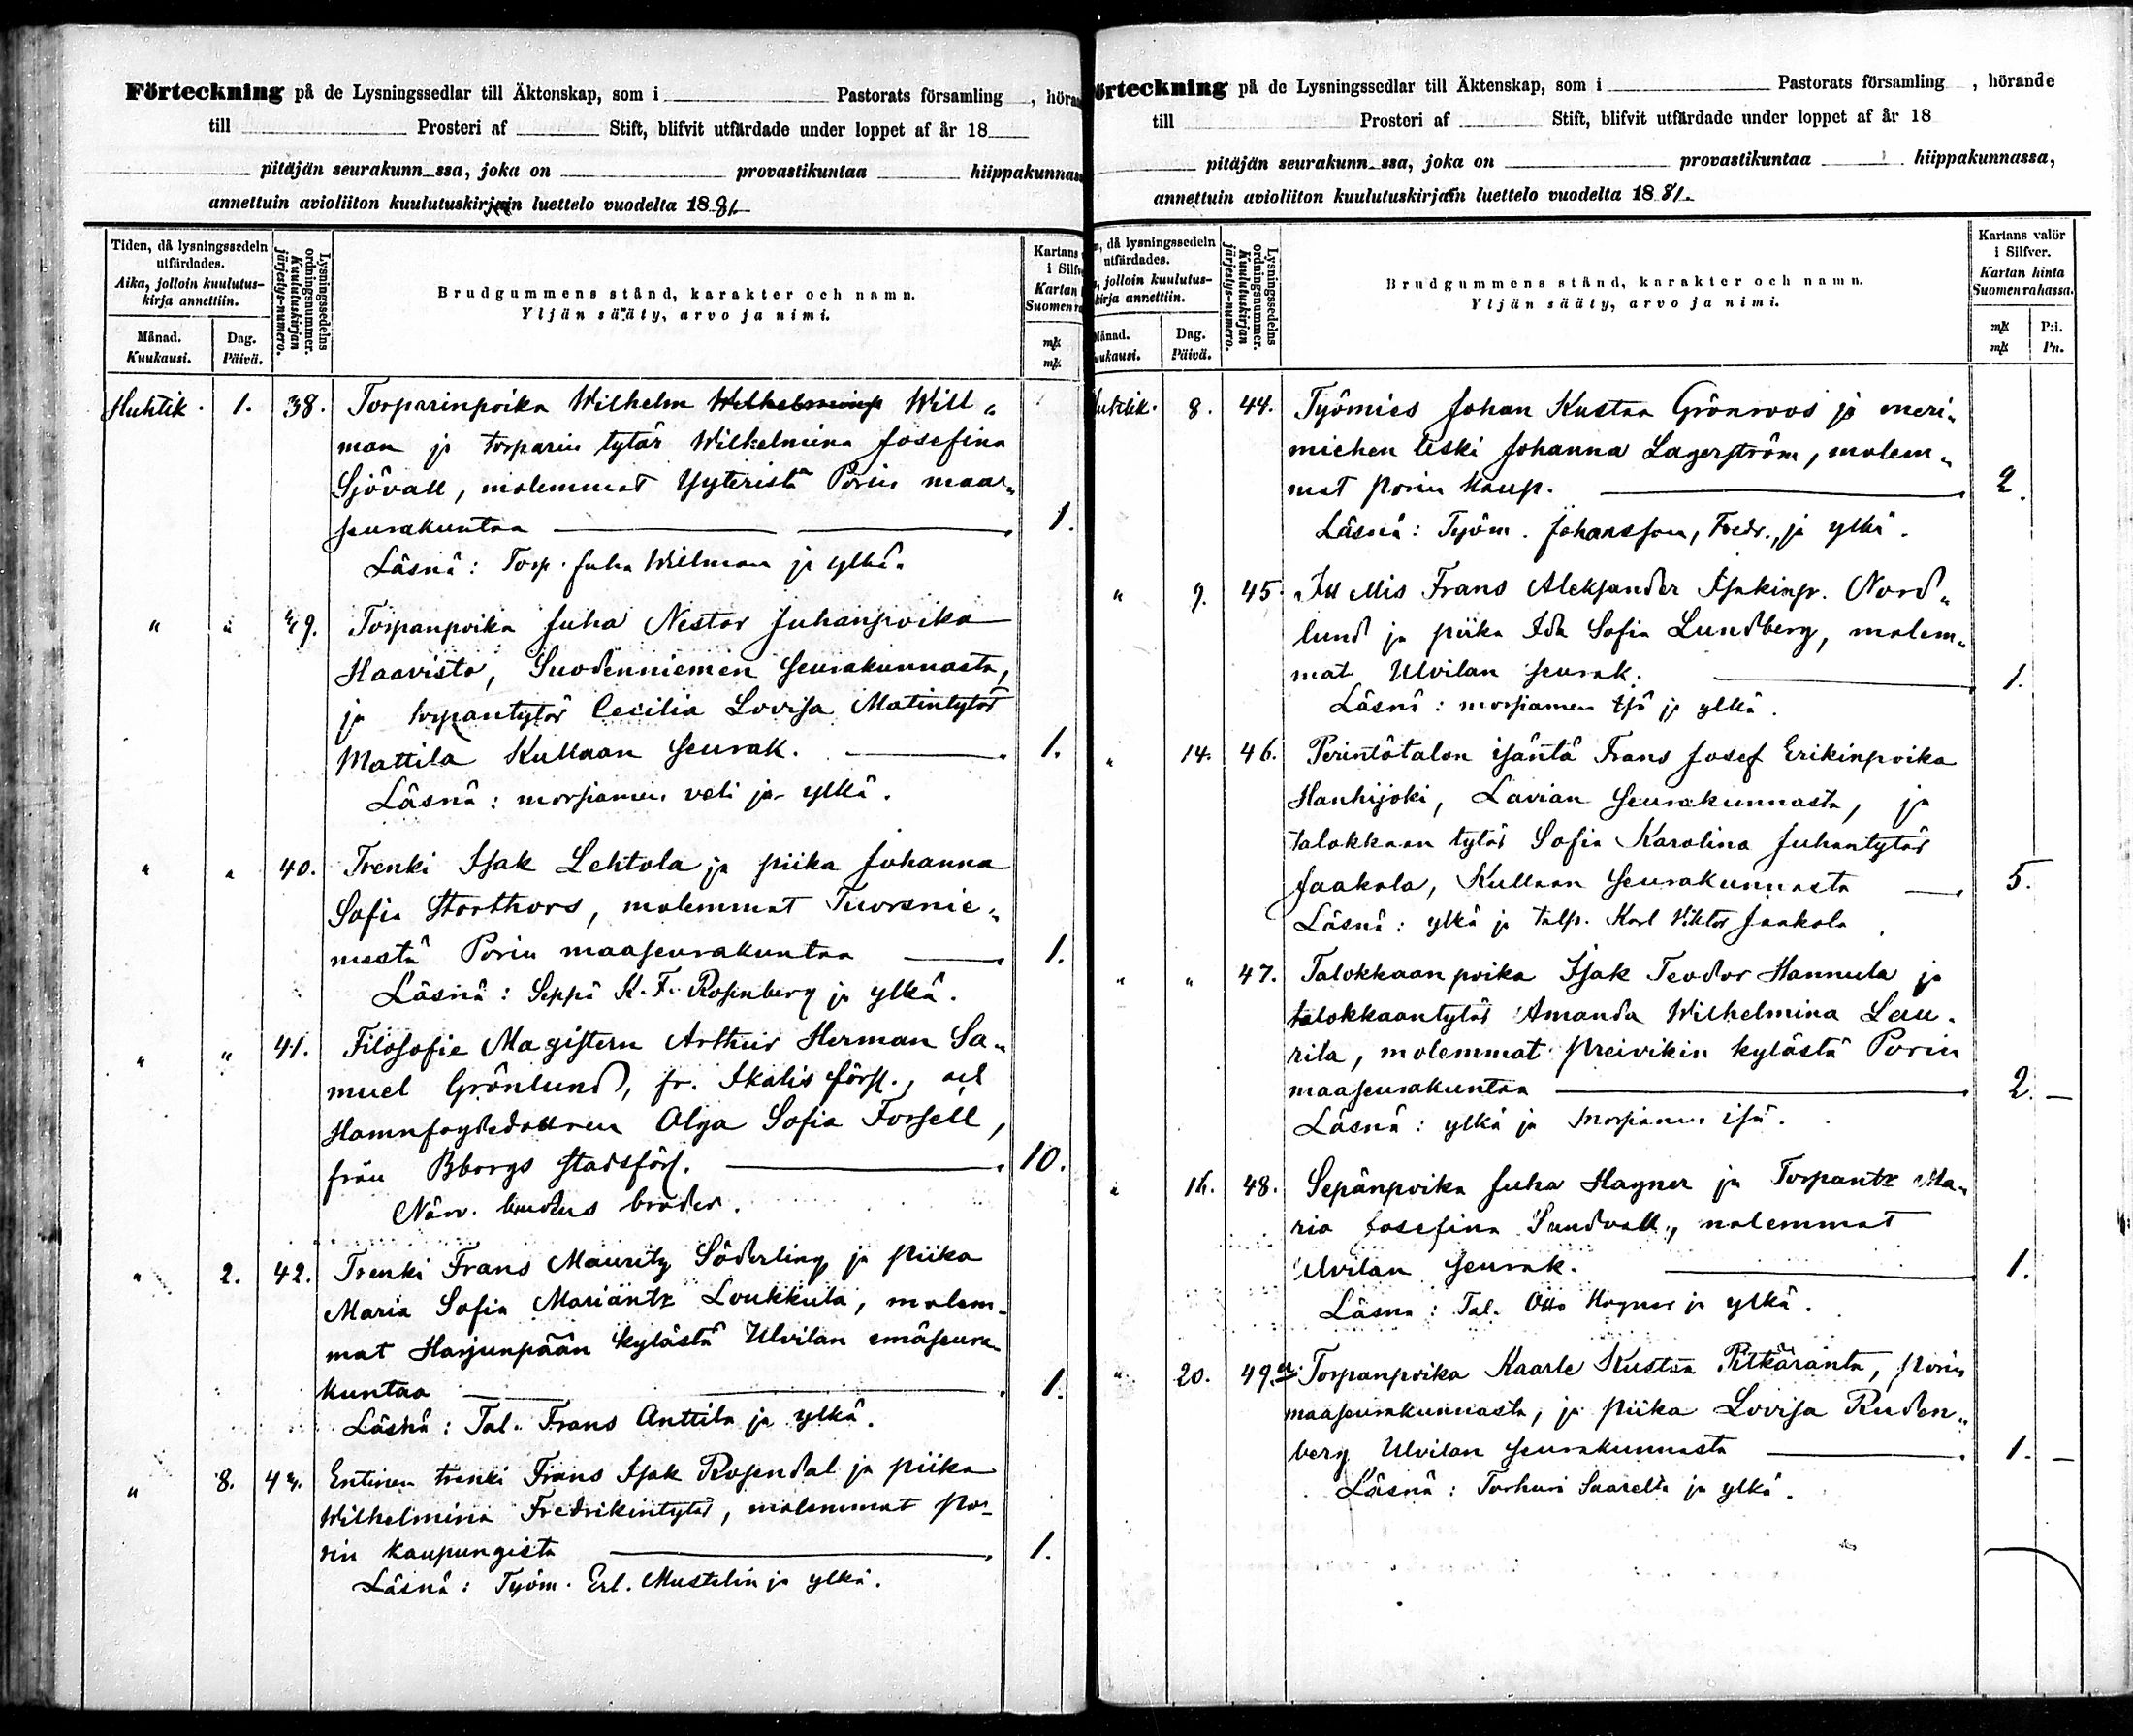 Förteckning på de Lysningssedlar till Äktenskap, som i Pastorats församling , höran
till Prosteri af Stift, blifvit utfärdade under loppet af år 18
pitäjän seurakunn ssa, joka on provastikuntaa hiippakunnas
annettuin avioliiton kuulutuskirjain luettelo vuodelta 1881.
Tiden, då lysningssedeln utfärdades.
Aika, jolloin kuulutuskirja annettiin.
Månad. Kuukausi.
Dag. Päivä.
Lysningssedelns ordningsnummer.
Kuulutuskirjan järjestys-numero.
Brudgummens stånd, karakter och namn.
Yljän sääty, arvo ja nimi.
Kartans
i Silfv
Kartan
Suomen ra
mk
mk
Huhtik. 1. 38. Torparinpoika Wilhelm Wilhelmin Will„
man ja torparin tytär Wilhelmina Josefina
Sjövall, molemmat Yyteristä Porin maa„
seurakuntaa 1.
Läsnä: Torp. Juha Willman ja ylkä.
" " 39. Torpanpoika Juha Nestor Juhanpoika
Haavisto, Suodenniemen seurakunnasta,
ja torpantytär Cecilia Lovisa Matintytär
Mattila Kullaan seurak. 1.
Läsnä: morsiamen veli ja ylkä.
" " 40. Trenki Isak Lehtola ja piika Johanna
Sofia Storthors, molemmat Tuorsnie„
mestä Porin maaseurakuntaa 1.
Läsnä: Seppä K. F. Rosenberg ja ylkä.
" " 41. Filosofie Magistern Arthur Herman Sa„
muel Grönlund, fr. Ikalis förs., och
Hamnfogdedottren Olga Sofia Forsell,
från Bborgs stadsförs. 10.
Närv. brudens broder.
" 2. 42. Trenki Frans Mauritz Söderling ja piika
Maria Sofia Mariantr Loukkula, molem„
mat Harjunpään kylästä Ulvilan emäseura„
kuntaa 1.
Läsnä: Tal. Frans Anttila ja ylkä.
" 8. 43. Entinen trenki Frans Isak Rosendal ja piika
Wilhelmina Fredrikintytär, molemmat Po„
rin kaupungista 1.
Läsnä: Työm. Erl. Mustelin ja ylkä.
örteckning på de Lysningssedlar till Äktenskap, som i Pastorats församling , hörande
till Prosteri af Stift, blifvit utfärdade under loppet af år 18
pitäjän seurakunn ssa, joka on provastikuntaa hiippakunnassa,
annettuin avioliiton kuulutuskirjain luettelo vuodelta 1881.
n, då lysningssedeln utfärdades.
, jolloin kuulutuskirja annettiin.
Månad. uukausi.
Dag. Päivä.
Lysningssedelns ordningsnummer.
Kuulutuskirjan järjestys-numero.
Brudgummens stånd, karakter och namn.
Yljän sääty, arvo ja nimi.
Kartans valör
i Silfver.
Kartan hinta
Suomen rahassa.
mk P:i.
mk Pn.
Huhtik. 8. 44. Työmies Johan Kustaa Grönroos ja meri„
miehen leski Johanna Lagerström, molem„
mat Porin kaup. 2.
Läsnä: Työm. Johansson, Fredr., ja ylkä.
" 9. 45. Itsellis Frans Aleksander Isakinp. Nord„
lund ja piika Ida Sofia Lundberg, molem„
mat Ulvilan seurak. 1.
Läsnä: morsiamen isä ja ylkä.
" 14. 46. Perintötalon isäntä Frans Josef Erikinpoika
Hanhijoki, Lavian seurakunnasta, ja
talokkaan tytär Sofia Karolina Juhantytär
Jaakola, Kullaan seurakunnasta 5.
Läsnä: ylkä ja talp. Karl Viktor Jaakola
" " 47. Talokkaan poika Isak Teodor Hannula ja
talokkaantytär Amanda Wilhelmina Lau„
rila, molemmat Preivikin kylästä Porin
maaseurakuntaa 2. —
Läsnä: ylkä ja morsiamen isä.
" 16. 48. Sepänpoika Juha Hagner ja Torpantr Ma„
ria Josefina Sundvall, molemmat
Ulvilan seurak. 1.
Läsnä: Tal. Otto Hagner ja ylkä.
" 20. 49.a. Torpanpoika Kaarle Kustaa Pitkäranta, Porin
maaseurakunnasta, ja piika Lovisa Ruden„
berg Ulvilan seurakunnasta 1. —
Läsnä: Saarelta ja ylkä.